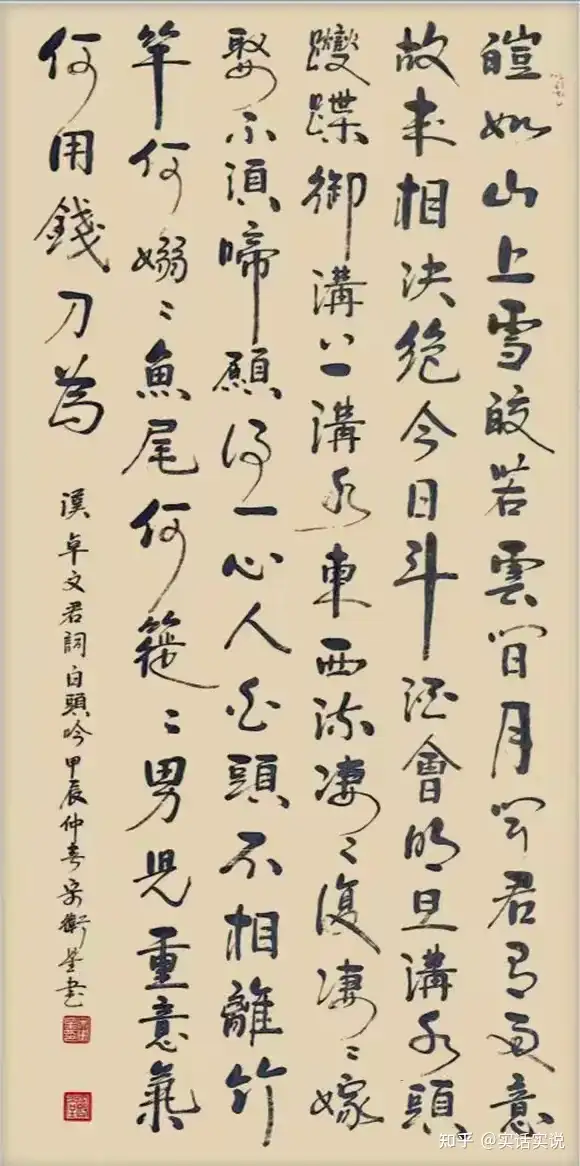 皚如山上雪皎若雲間月聞君有兩意
故来相决絶今日斗酒會明旦溝水頭
躞蹀御溝上溝水東西流凄〻復凄〻嫁
娶不須啼願得一心人白頭不相離竹
竿何嫋〻魚尾何簁〻男兒重意氣
何用錢刀為
漢卓文君詞白頭吟甲辰仲春宋衛星書
知乎 @实话实说